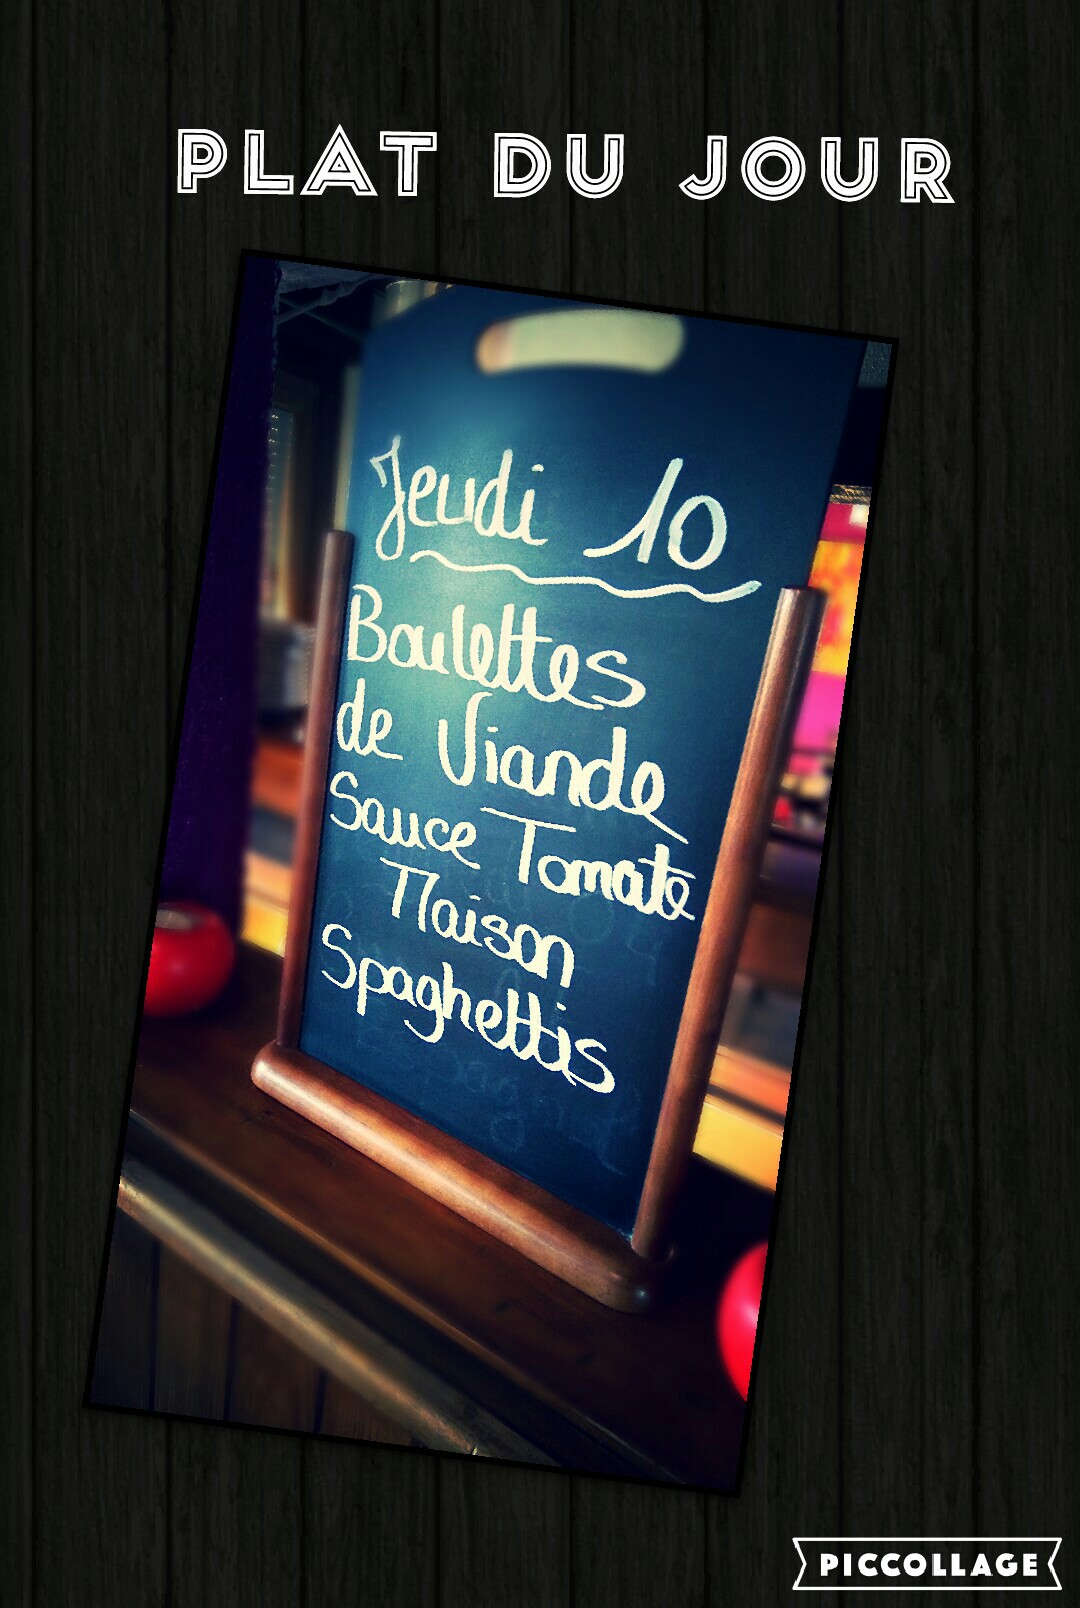 PLAT DU JOUR
Jeudi 10
Boulettes
de Viande
Sauce Tomate
Maison
Spaghettis
PICCOLLAGE